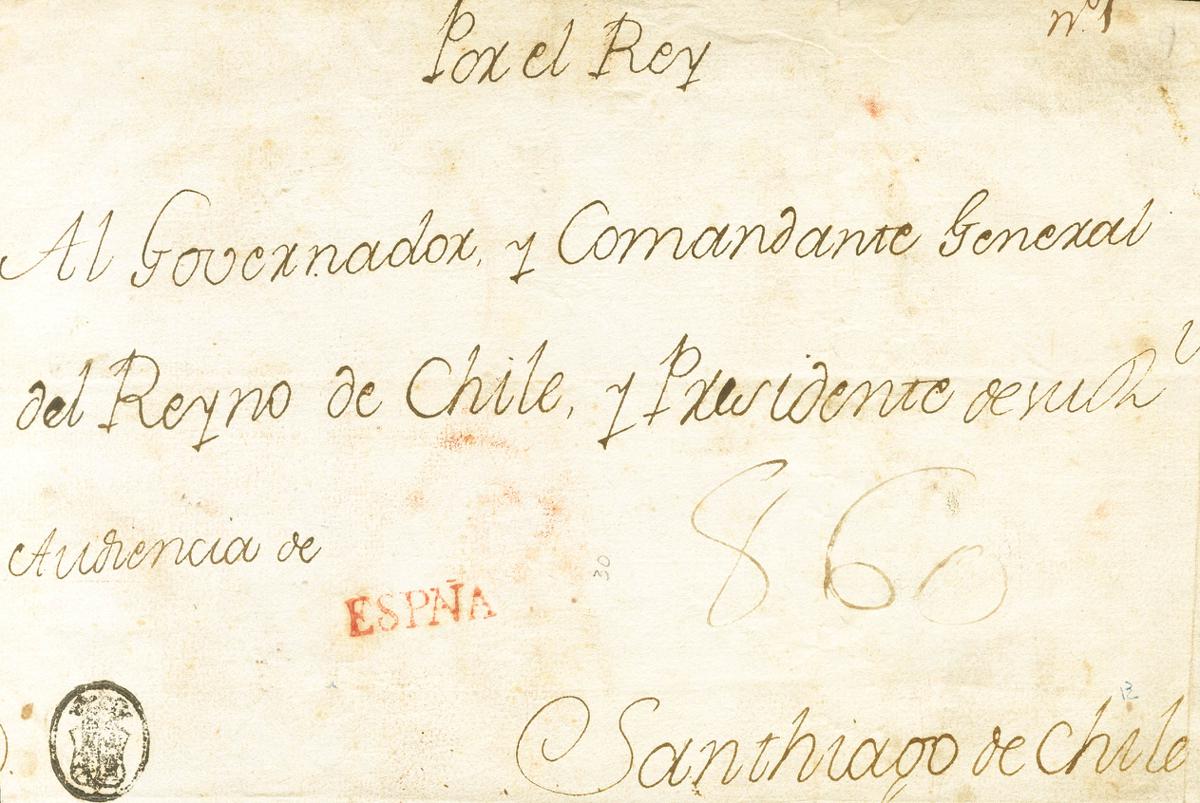 nº 1
Por el Rey
Al Governador, y Comandante General
del Reyno de Chile, y Presidente de su Rl
Audiencia de
860
30
ESPÑA
12
Santhiago de Chile